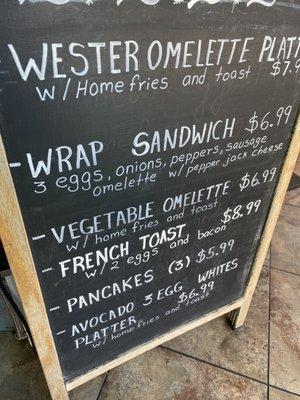 WESTER OMELETTE PLATT
w/Home fries and toast $7.9
- WRAP SANDWICH $6.99
3 eggs, onions, peppers, sausage
omelette w/ pepper jack cheese
- VEGETABLE OMELETTE $6.99
w/ home fries and toast
- FRENCH TOAST $8.99
w/ 2 eggs and bacon
- PANCAKES (3) $5.99
- AVOCADO 3 EGG WHITES
PLATTER $6.99
w/ home fries and toast